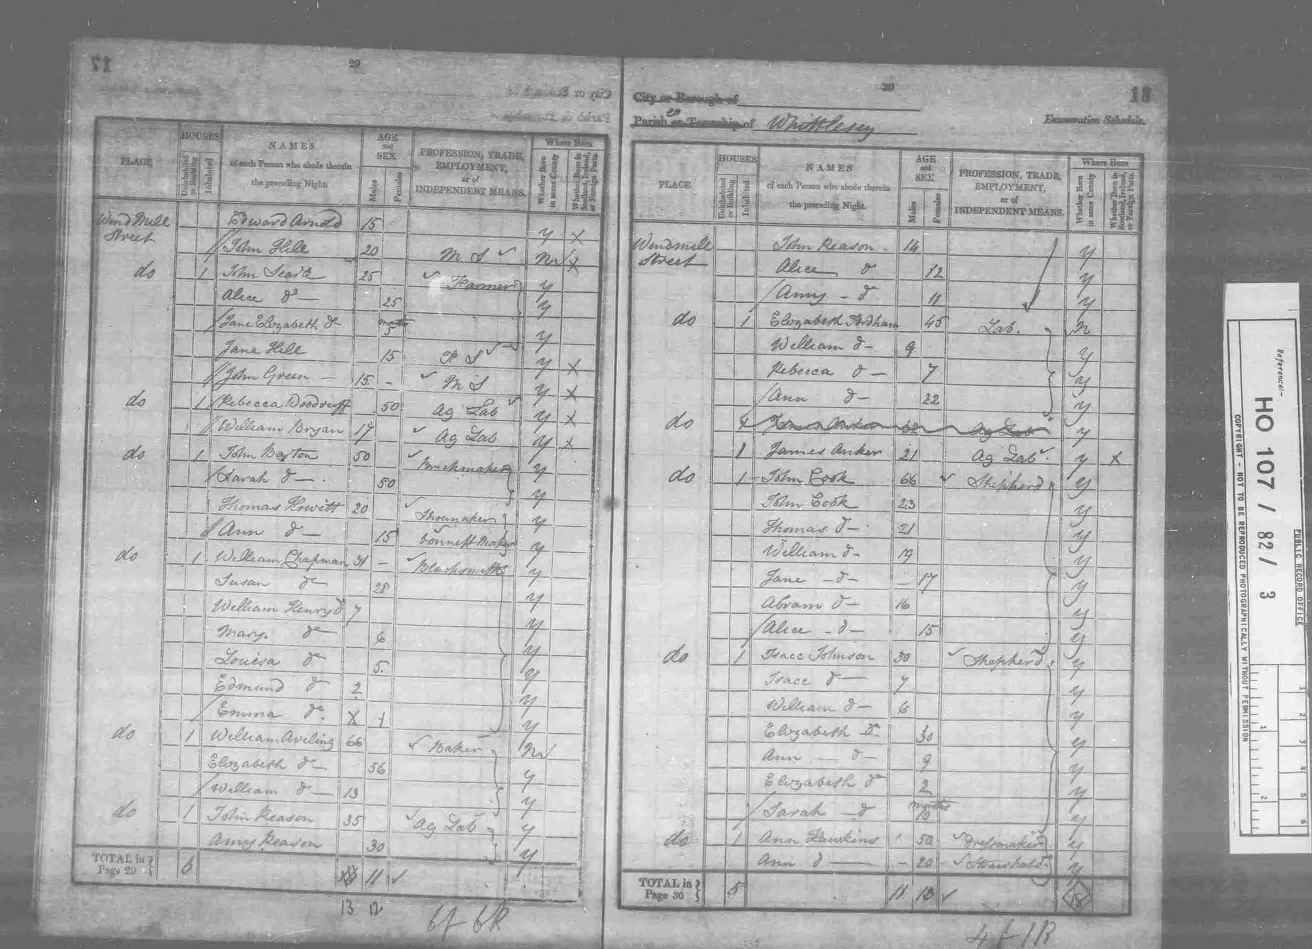 17
29
PLACE
HOUSES
Uninhabited or Building
Inhabited
NAMES
of each Person who abode therein the preceding Night.
AGE and SEX
Males
Females
PROFESSION, TRADE, EMPLOYMENT, or of INDEPENDENT MEANS.
Where Born
Whether Born in same County
Whether Born in Scotland, Ireland, or Foreign Parts.
Wind Mill Street Edward Arnold 15 y X
John Hill 20 M S X
do 1 John 25 Farmer y
Alice do 25 y
Jane Elizabeth do months 5 y
Jane Hill 15 F S y X
John Green 15 M S y X
do 1 Rebecca Woodruff 50 Ag Lab y X
William Bryan 17 Ag Lab y X
do 1 John 50 Brickmaker y
Sarah do 50 y
Thomas Howitt 20 Shoemaker y
Ann do 15 bonnett Maker y
do 1 William Chapman Blacksmith y
Susan do 28 y
William Henry do 7 y
Mary do 6 y
Louisa do 5 y
Edmund do 2 y
Emma do X 1 y
do 1 William Aveling 66 Baker N
Elizabeth do 56 y
William do 13 y
do 1 John Reason 35 Ag Lab y
Amy Reason 30 y
TOTAL in Page 29 6 11
13 12
30
18
City or Borough of
Parish or Township of Whittlesey
Enumeration Schedule.
PLACE
HOUSES
Uninhabited or Building
Inhabited
NAMES
of each Person who abode therein the preceding Night.
AGE and SEX
Males
Females
PROFESSION, TRADE, EMPLOYMENT, or of INDEPENDENT MEANS.
Where Born
Whether Born in same County
Whether Born in Scotland, Ireland, or Foreign Parts.
Windmill Street John Reason 14 y
Alice do 12 y
Amy do 11 y
do 1 Elizabeth Fordham 45 Lab. N
William do 9 y
Rebecca do 7 y
Ann do 22 y
do Ag Lab y
1 James Anker 21 Ag Lab y X
do 1 John Cook 66 Shepherd y
John Cook 23 y
Thomas do 21 y
William do 19 y
Jane do 17 y
Abram do 16 y
Alice do 15 y
do 1 Isacc Johnson 30 Shepherd y
Isacc do 7 y
William do 6 y
Elizabeth do 30 y
Ann do 9 y
Elizabeth do 2 y
Sarah do months 10 y
do 1 Ann Hawkins 50 Dressmaker y
Ann do 20 y
TOTAL in Page 30 5 11 13
Reference:-
HO 107 / 82 / 3
PUBLIC RECORD OFFICE
COPYRIGHT - NOT TO BE REPRODUCED PHOTOGRAPHICALLY WITHOUT PERMISSION